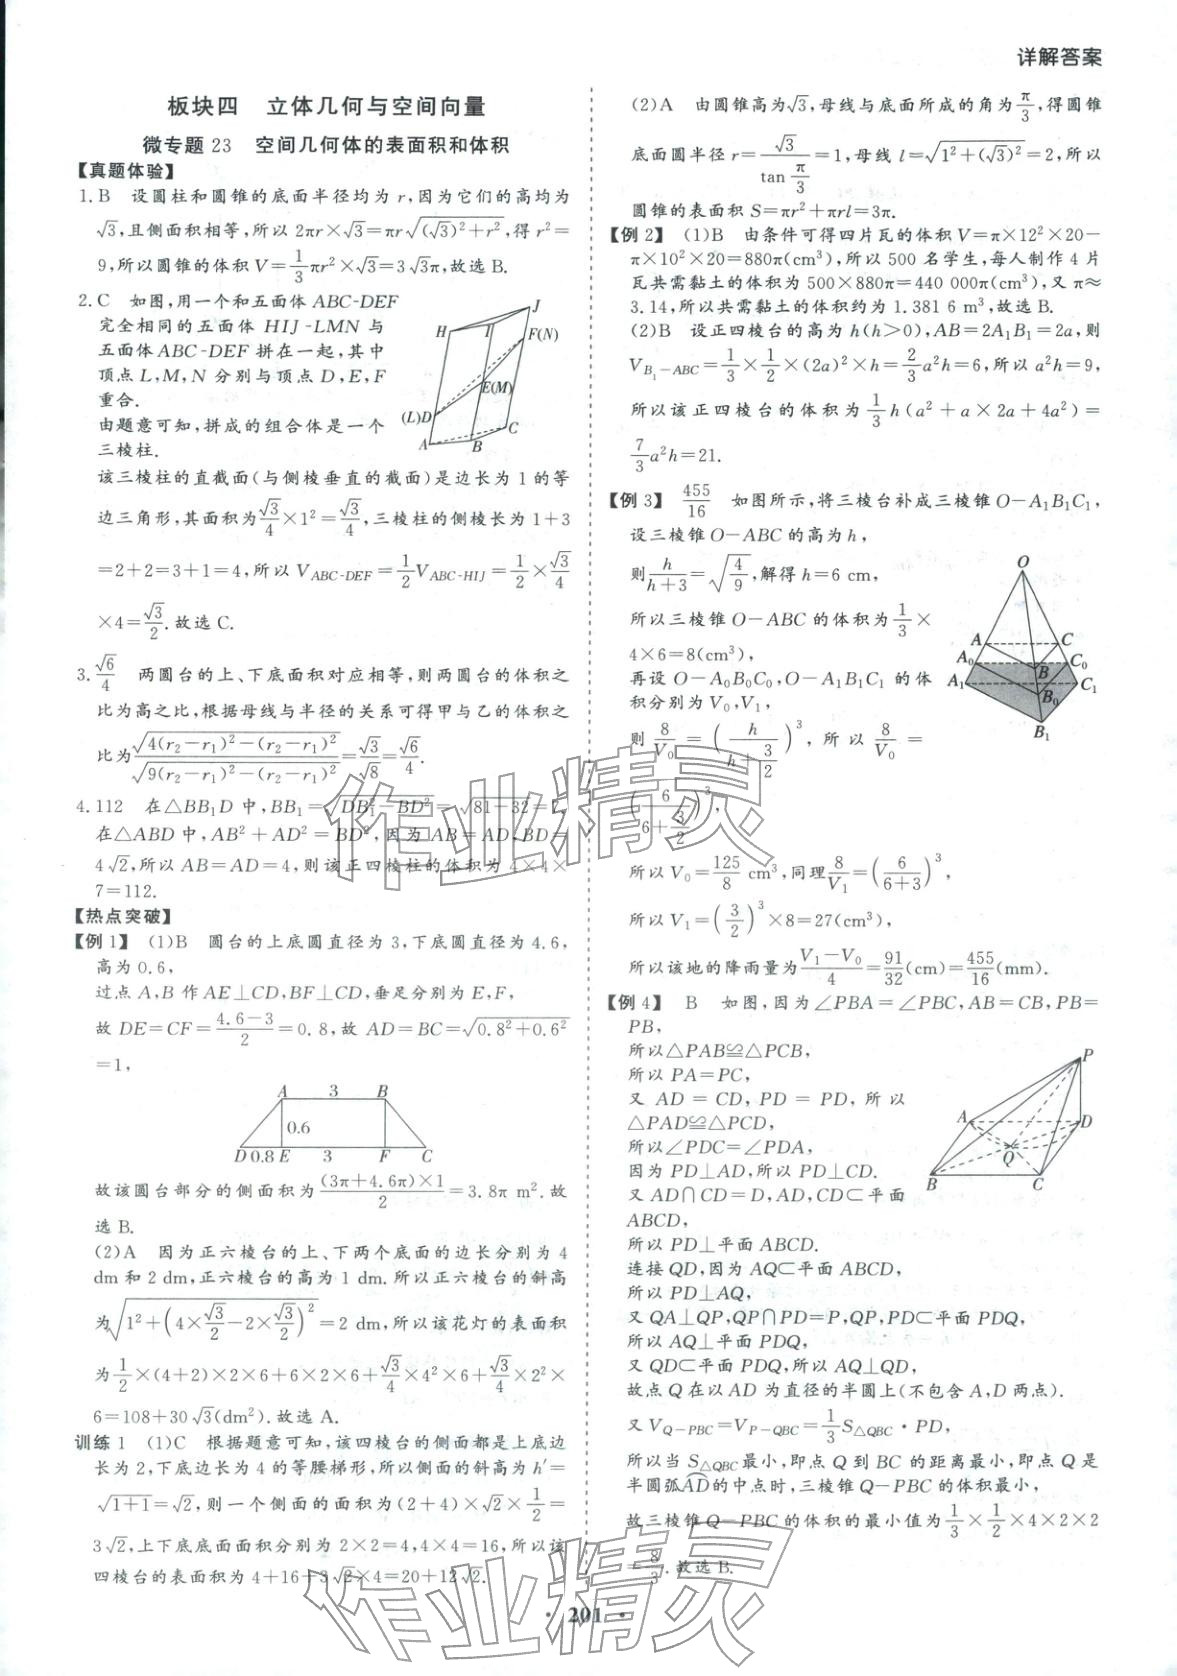 详解答案
板块四 立体几何与空间向量
微专题 23 空间几何体的表面积和体积
【真题体验】
1.B 设圆柱和圆锥的底面半径均为 r,因为它们的高均为
√3,且侧面积相等,所以 2πr×√3=πr√((√3)²+r²),得 r²=
9,所以圆锥的体积 V=1/3πr²×√3=3√3π,故选 B.
2.C 如图,用一个和五面体 ABC-DEF
完全相同的五面体 HIJ-LMN 与
五面体 ABC-DEF 拼在一起,其中
顶点 L,M,N 分别与顶点 D,E,F
重合.
由题意可知,拼成的组合体是一个
三棱柱.
J
H
I
F(N)
E(M)
(L)D
C
A
B
该三棱柱的直截面(与侧棱垂直的截面)是边长为 1 的等
边三角形,其面积为√3/4×1²=√3/4,三棱柱的侧棱长为 1+3
=2+2=3+1=4,所以 V_{ABC-DEF}=1/2V_{ABC-HIJ}=1/2×√3/4
×4=√3/2.故选 C.
3.√6/4 两圆台的上、下底面积对应相等,则两圆台的体积之
比为高之比,根据母线与半径的关系可得甲与乙的体积之
比为√(4(r₂-r₁)²-(r₂-r₁)²)/√(9(r₂-r₁)²-(r₂-r₁)²)=√3/√8=√6/4.
4.112 在△BB₁D 中,BB₁=√(DB₁²-BD²)=√(81-32)=7,
在△ABD 中,AB²+AD²=BD²,因为 AB=AD,BD=
4√2,所以 AB=AD=4,则该正四棱柱的体积为 4×4×
7=112.
【热点突破】
【例 1】 (1)B 圆台的上底圆直径为 3,下底圆直径为 4.6,
高为 0.6,
过点 A,B 作 AE⊥CD,BF⊥CD,垂足分别为 E,F,
故 DE=CF=(4.6-3)/2=0.8,故 AD=BC=√(0.8²+0.6²)
=1,
A 3 B
0.6
D 0.8 E 3 F C
故该圆台部分的侧面积为(3π+4.6π)×1/2=3.8π m².故
选 B.
(2)A 因为正六棱台的上、下两个底面的边长分别为 4
dm 和 2 dm,正六棱台的高为 1 dm.所以正六棱台的斜高
为√(1²+(4×√3/2-2×√3/2)²)=2 dm,所以该花灯的表面积
为1/2×(4+2)×2×6+6×2×6+√3/4×4²×6+√3/4×2²×
6=108+30√3(dm²).故选 A.
训练 1 (1)C 根据题意可知,该四棱台的侧面都是上底边
长为 2,下底边长为 4 的等腰梯形,所以侧面的斜高为 h′=
√(1+1)=√2,则一个侧面的面积为(2+4)×√2×1/2=
3√2,上下底底面面积分别为 2×2=4,4×4=16,所以该
四棱台的表面积为 4+16+3√2×4=20+12√2.
(2)A 由圆锥高为√3,母线与底面所成的角为π/3,得圆锥
底面圆半径 r=√3/tan(π/3)=1,母线 l=√(1²+(√3)²)=2,所以
圆锥的表面积 S=πr²+πrl=3π.
【例 2】 (1)B 由条件可得四片瓦的体积 V=π×12²×20-
π×10²×20=880π(cm³),所以 500 名学生,每人制作 4 片
瓦共需黏土的体积为 500×880π=440 000π(cm³),又 π≈
3.14,所以共需黏土的体积约为 1.381 6 m³,故选 B.
(2)B 设正四棱台的高为 h(h>0),AB=2A₁B₁=2a,则
V_{B₁-ABC}=1/3×1/2×(2a)²×h=2/3a²h=6,所以 a²h=9,
所以该正四棱台的体积为 1/3h(a²+a×2a+4a²)=
7/3a²h=21.
【例 3】 455/16 如图所示,将三棱台补成三棱锥 O-A₁B₁C₁,
设三棱锥 O-ABC 的高为 h,
则 h/(h+3)=√(4/9),解得 h=6 cm,
所以三棱锥 O-ABC 的体积为1/3×
4×6=8(cm³),
再设 O-A₀B₀C₀,O-A₁B₁C₁ 的体
积分别为 V₀,V₁,
O
A
C
A₀
C₀
B
A₁
C₁
B₀
B₁
则 8/V₀=(h/(h+3/2))³,所以 8/V₀=
(6/(6+3/2))³
所以 V₀=125/8 cm³,同理8/V₁=(6/(6+3))³
所以 V₁=(3/2)³×8=27(cm³),
所以该地的降雨量为(V₁-V₀)/4=91/32(cm)=455/16(mm).
【例 4】 B 如图,因为∠PBA=∠PBC,AB=CB,PB=
PB,
所以△PAB≌△PCB,
所以 PA=PC,
又 AD=CD,PD=PD,所以
△PAD≌△PCD,
所以∠PDC=∠PDA,
因为 PD⊥AD,所以 PD⊥CD.
又 AD∩CD=D,AD,CD⊂平面
ABCD,
P
A
D
Q
B
C
所以 PD⊥平面 ABCD.
连接 QD,因为 AQ⊂平面 ABCD,
所以 PD⊥AQ,
又 QA⊥QP,QP∩PD=P,QP,PD⊂平面 PDQ,
所以 AQ⊥平面 PDQ,
又 QD⊂平面 PDQ,所以 AQ⊥QD,
故点 Q 在以 AD 为直径的半圆上(不包含 A,D 两点).
又 V_{Q-PBC}=V_{P-QBC}=1/3S_{△QBC}·PD,
所以当 S_{△QBC}最小,即点 Q 到 BC 的距离最小,即点 Q 是
半圆弧A͡D的中点时,三棱锥 Q-PBC 的体积最小,
故三棱锥 Q-PBC 的体积的最小值为1/3×1/2×4×2×2
=8/3.故选 B.
·201·
作业精灵
作业精灵